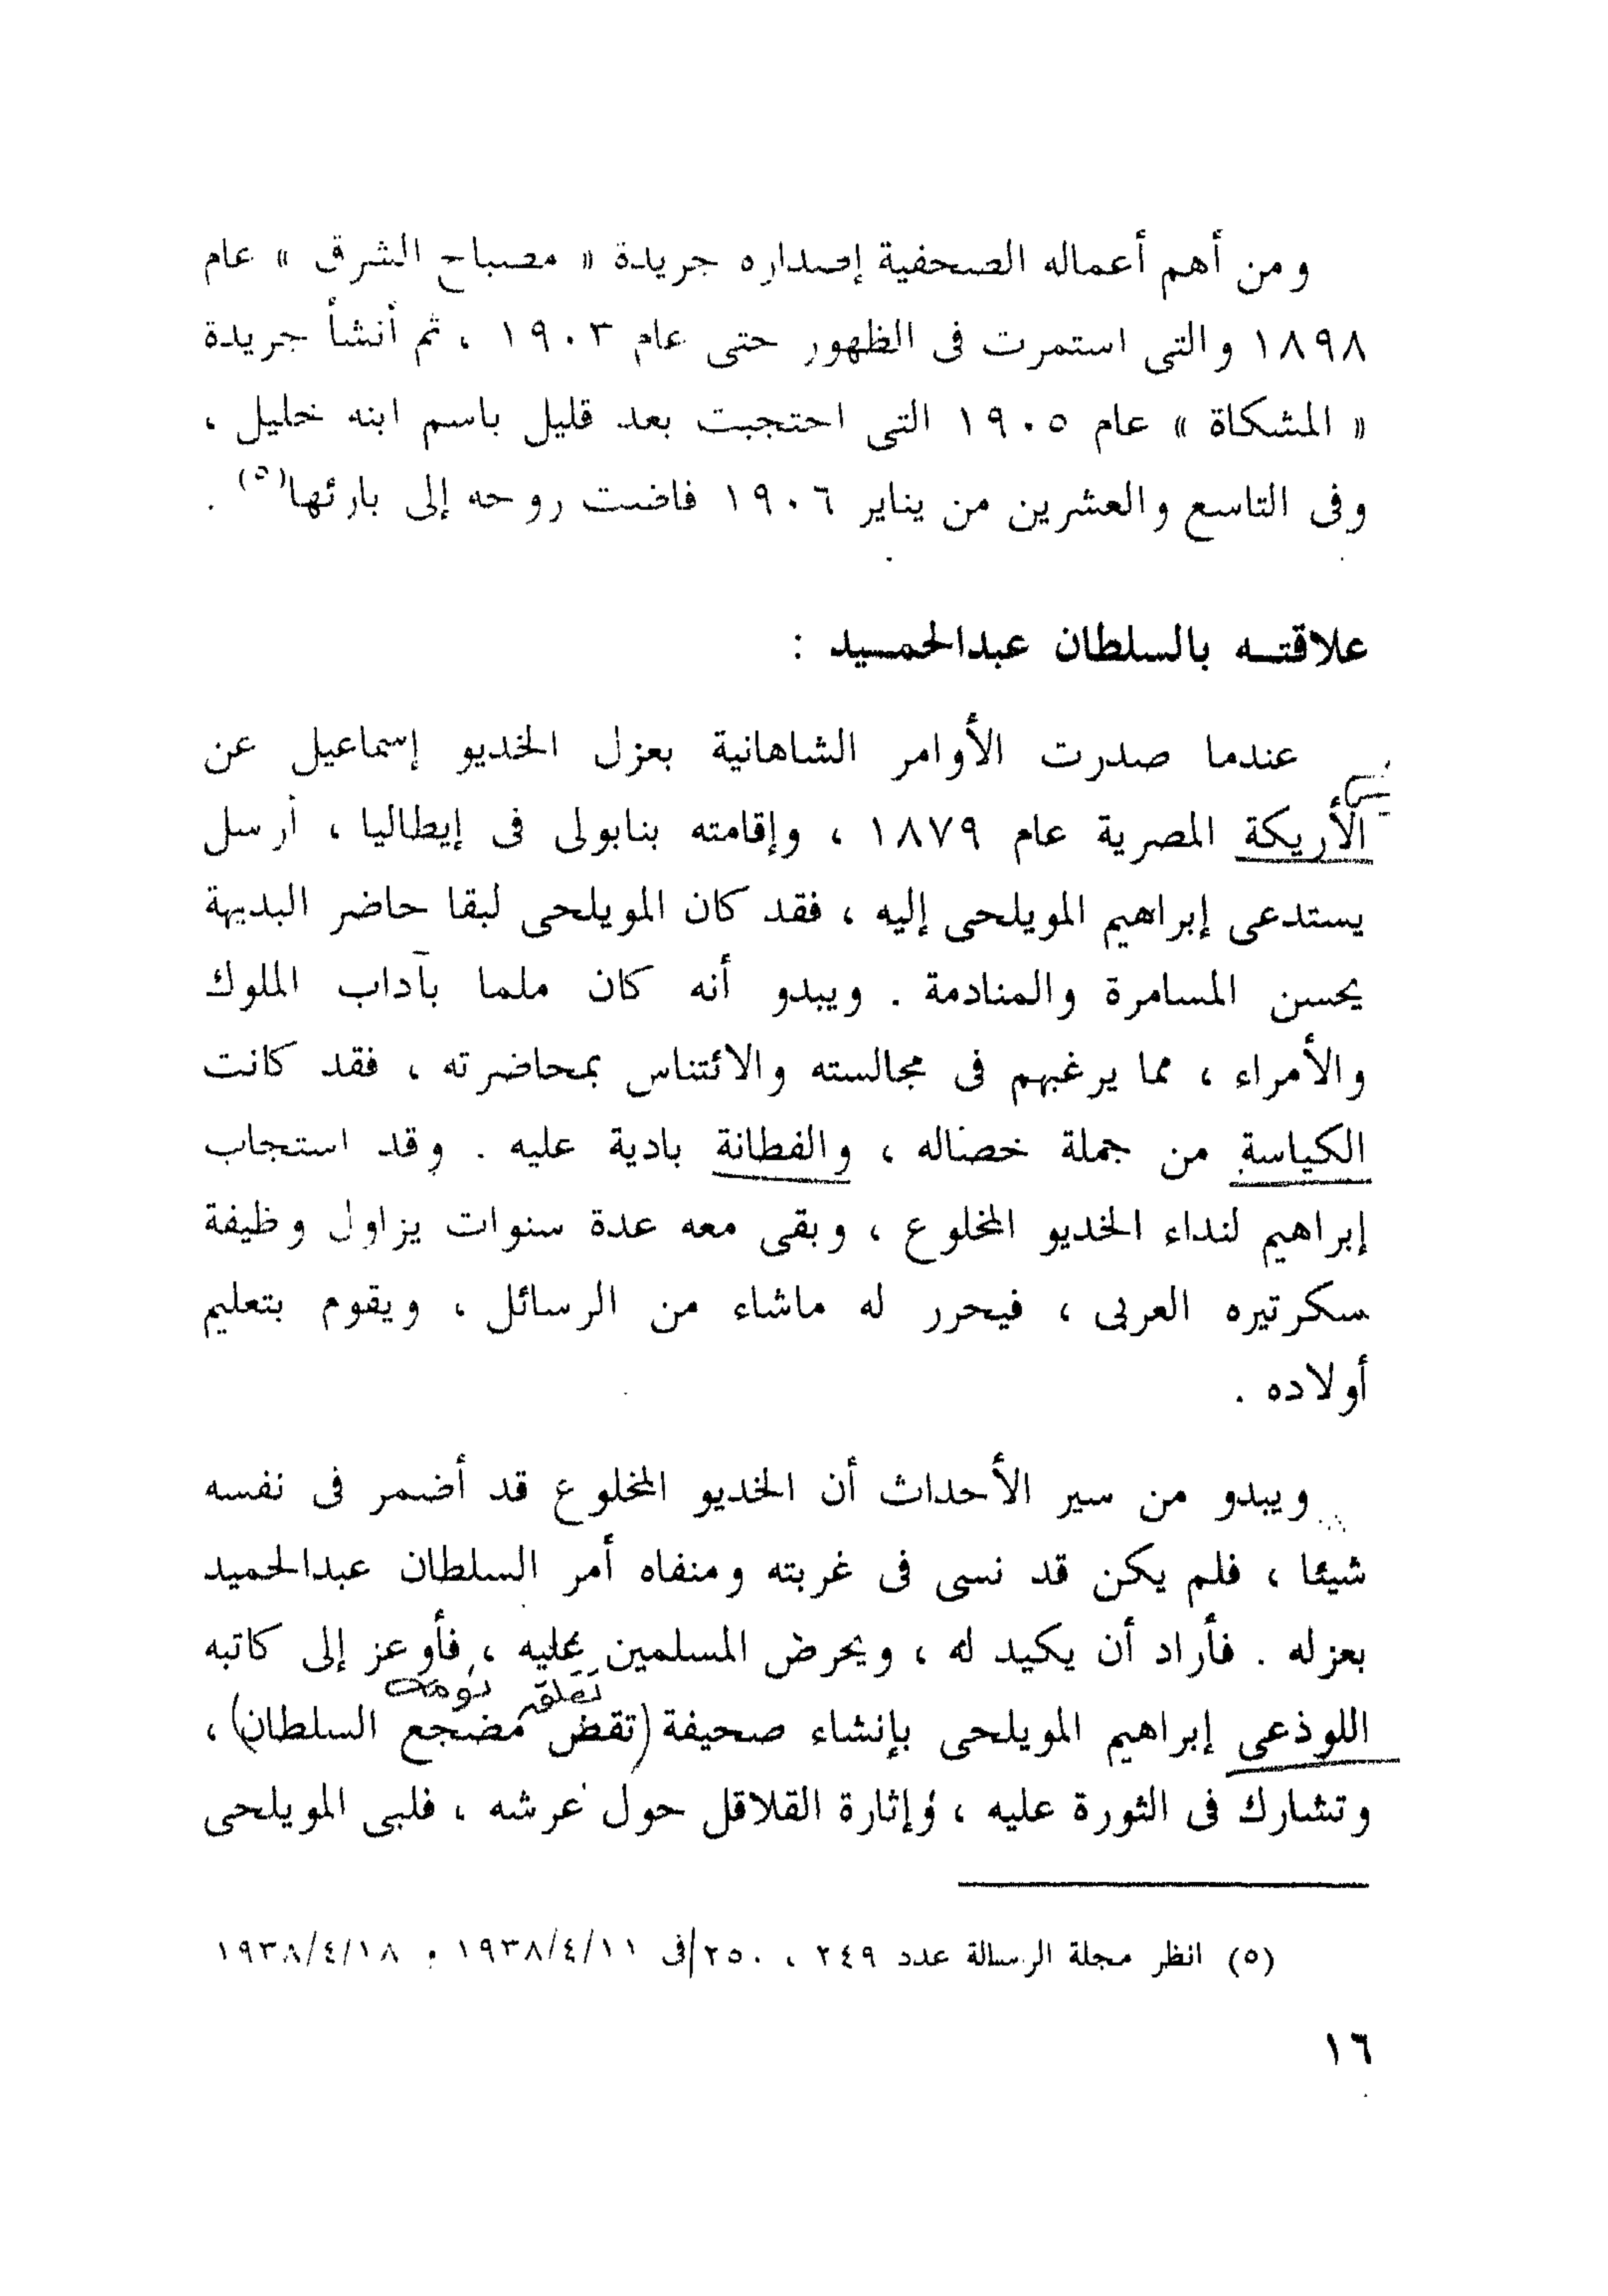 ومن أهم أعماله الصحفية إصداره جريدة « مصباح الشرق » عام
١٨٩٨ والتى استمرت فى الظهور حتى عام ١٩٠٣ ، ثم أنشأ جريدة
« المشكاة » عام ١٩٠٥ التى احتجبت بعد قليل باسم ابنه خليل ،
وفى التاسع والعشرين من يناير ١٩٠٦ فاضت روحه إلى بارئها(٥) .
علاقتـه بالسلطان عبدالحمـيد :
عندما صدرت الأوامر الشاهانية بعزل الخديو إسماعيل عن
الأريكة المصرية عام ١٨٧٩ ، وإقامته بنابولى فى إيطاليا ، أرسل
يستدعى إبراهيم المويلحى إليه ، فقد كان المويلحى لبقا حاضر البديهة
يحسن المسامرة والمنادمة . ويبدو أنه كان ملما بآداب الملوك
والأمراء ، مما يرغبهم فى مجالسته والائتناس بمحاضرته ، فقد كانت
الكياسة من جملة خصاله ، والفطانة بادية عليه . وقد استجاب
إبراهيم لنداء الخديو المخلوع ، وبقى معه عدة سنوات يزاول وظيفة
سكرتيره العربى ، فيحرر له ماشاء من الرسائل ، ويقوم بتعليم
أولاده .
ويبدو من سير الأحداث أن الخديو المخلوع قد أضمر فى نفسه
شيئا ، فلم يكن قد نسى فى غربته ومنفاه أمر السلطان عبدالحميد
بعزله . فأراد أن يكيد له ، ويحرض المسلمين عليه ، فأوعز إلى كاتبه
تقلقه نومه
اللوذعى إبراهيم المويلحى بإنشاء صحيفة (تقض مضجع السلطان) ،
وتشارك فى الثورة عليه ، وإثارة القلاقل حول عرشه ، فلبى المويلحى
(٥) انظر مجلة الرسالة عدد ٢٤٩ ، ٢٥٠/فى ١٩٣٨/٤/١١ و ١٩٣٨/٤/١٨
١٦